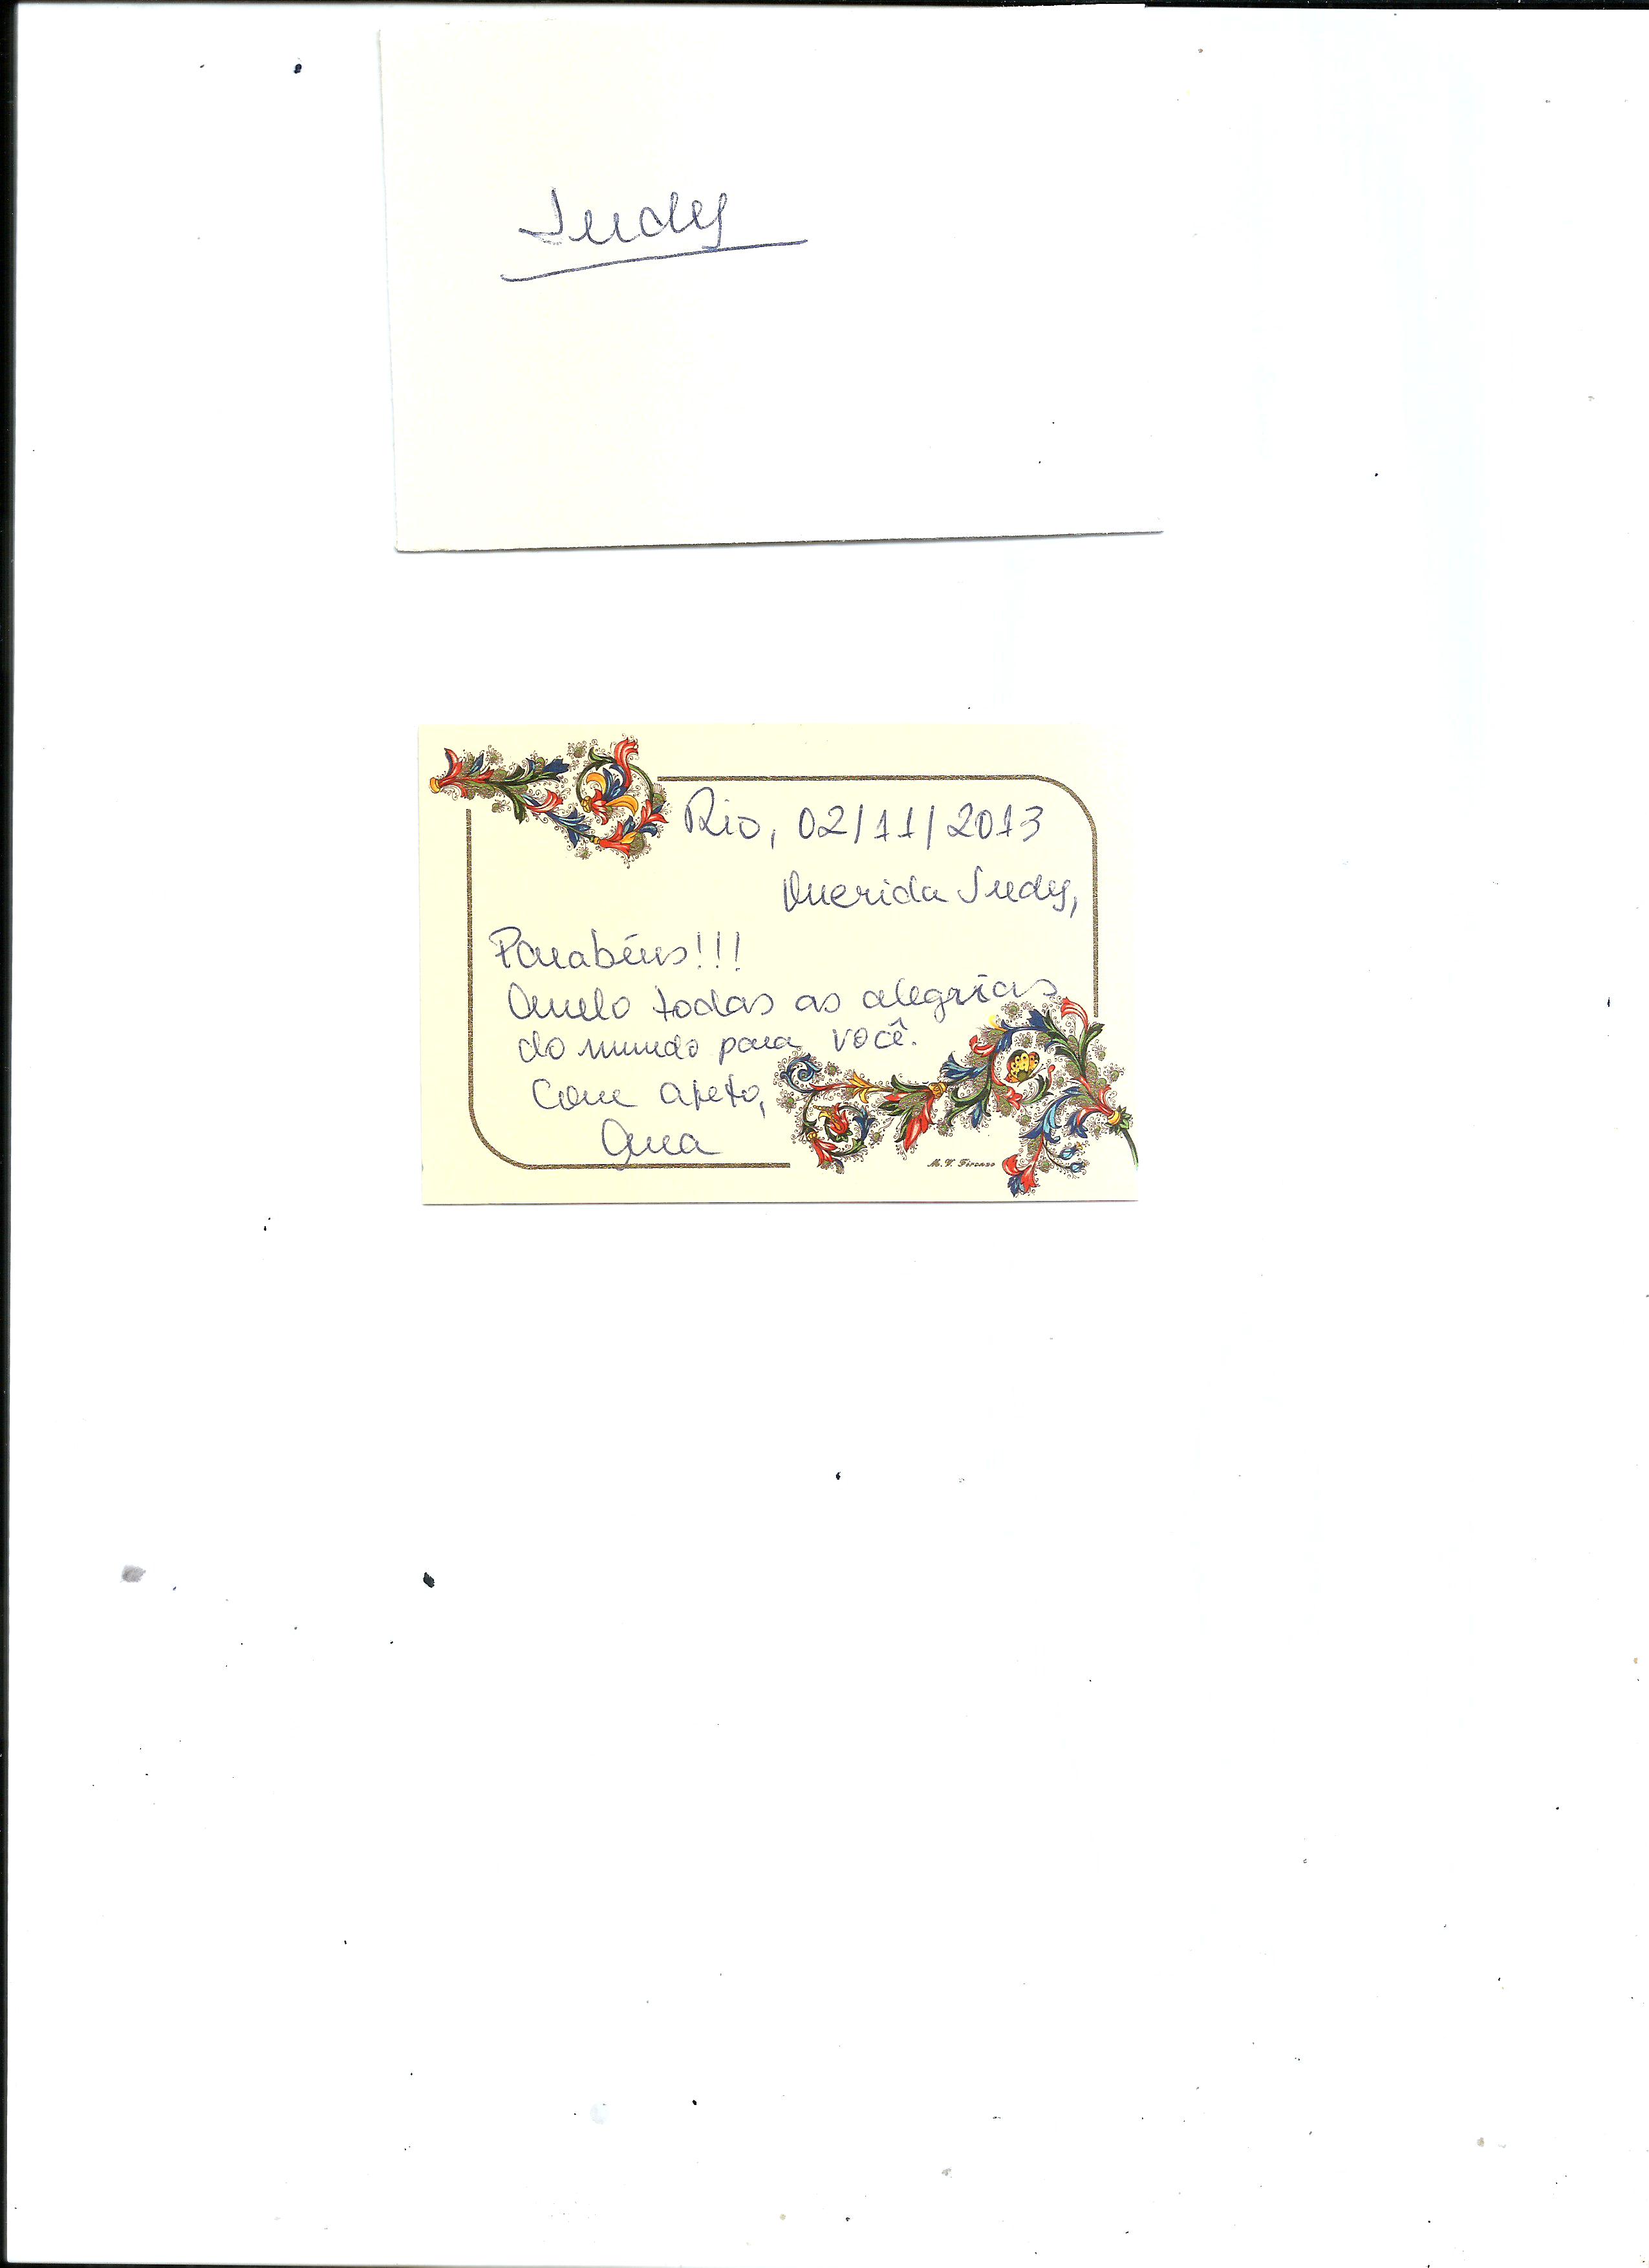 Judy
Rio, 02/11/2013
Querida Judy,
Parabéns!!!
Quero todas as alegrias
do mundo para você.
Com afeto,
Ana
M. V. Firenze